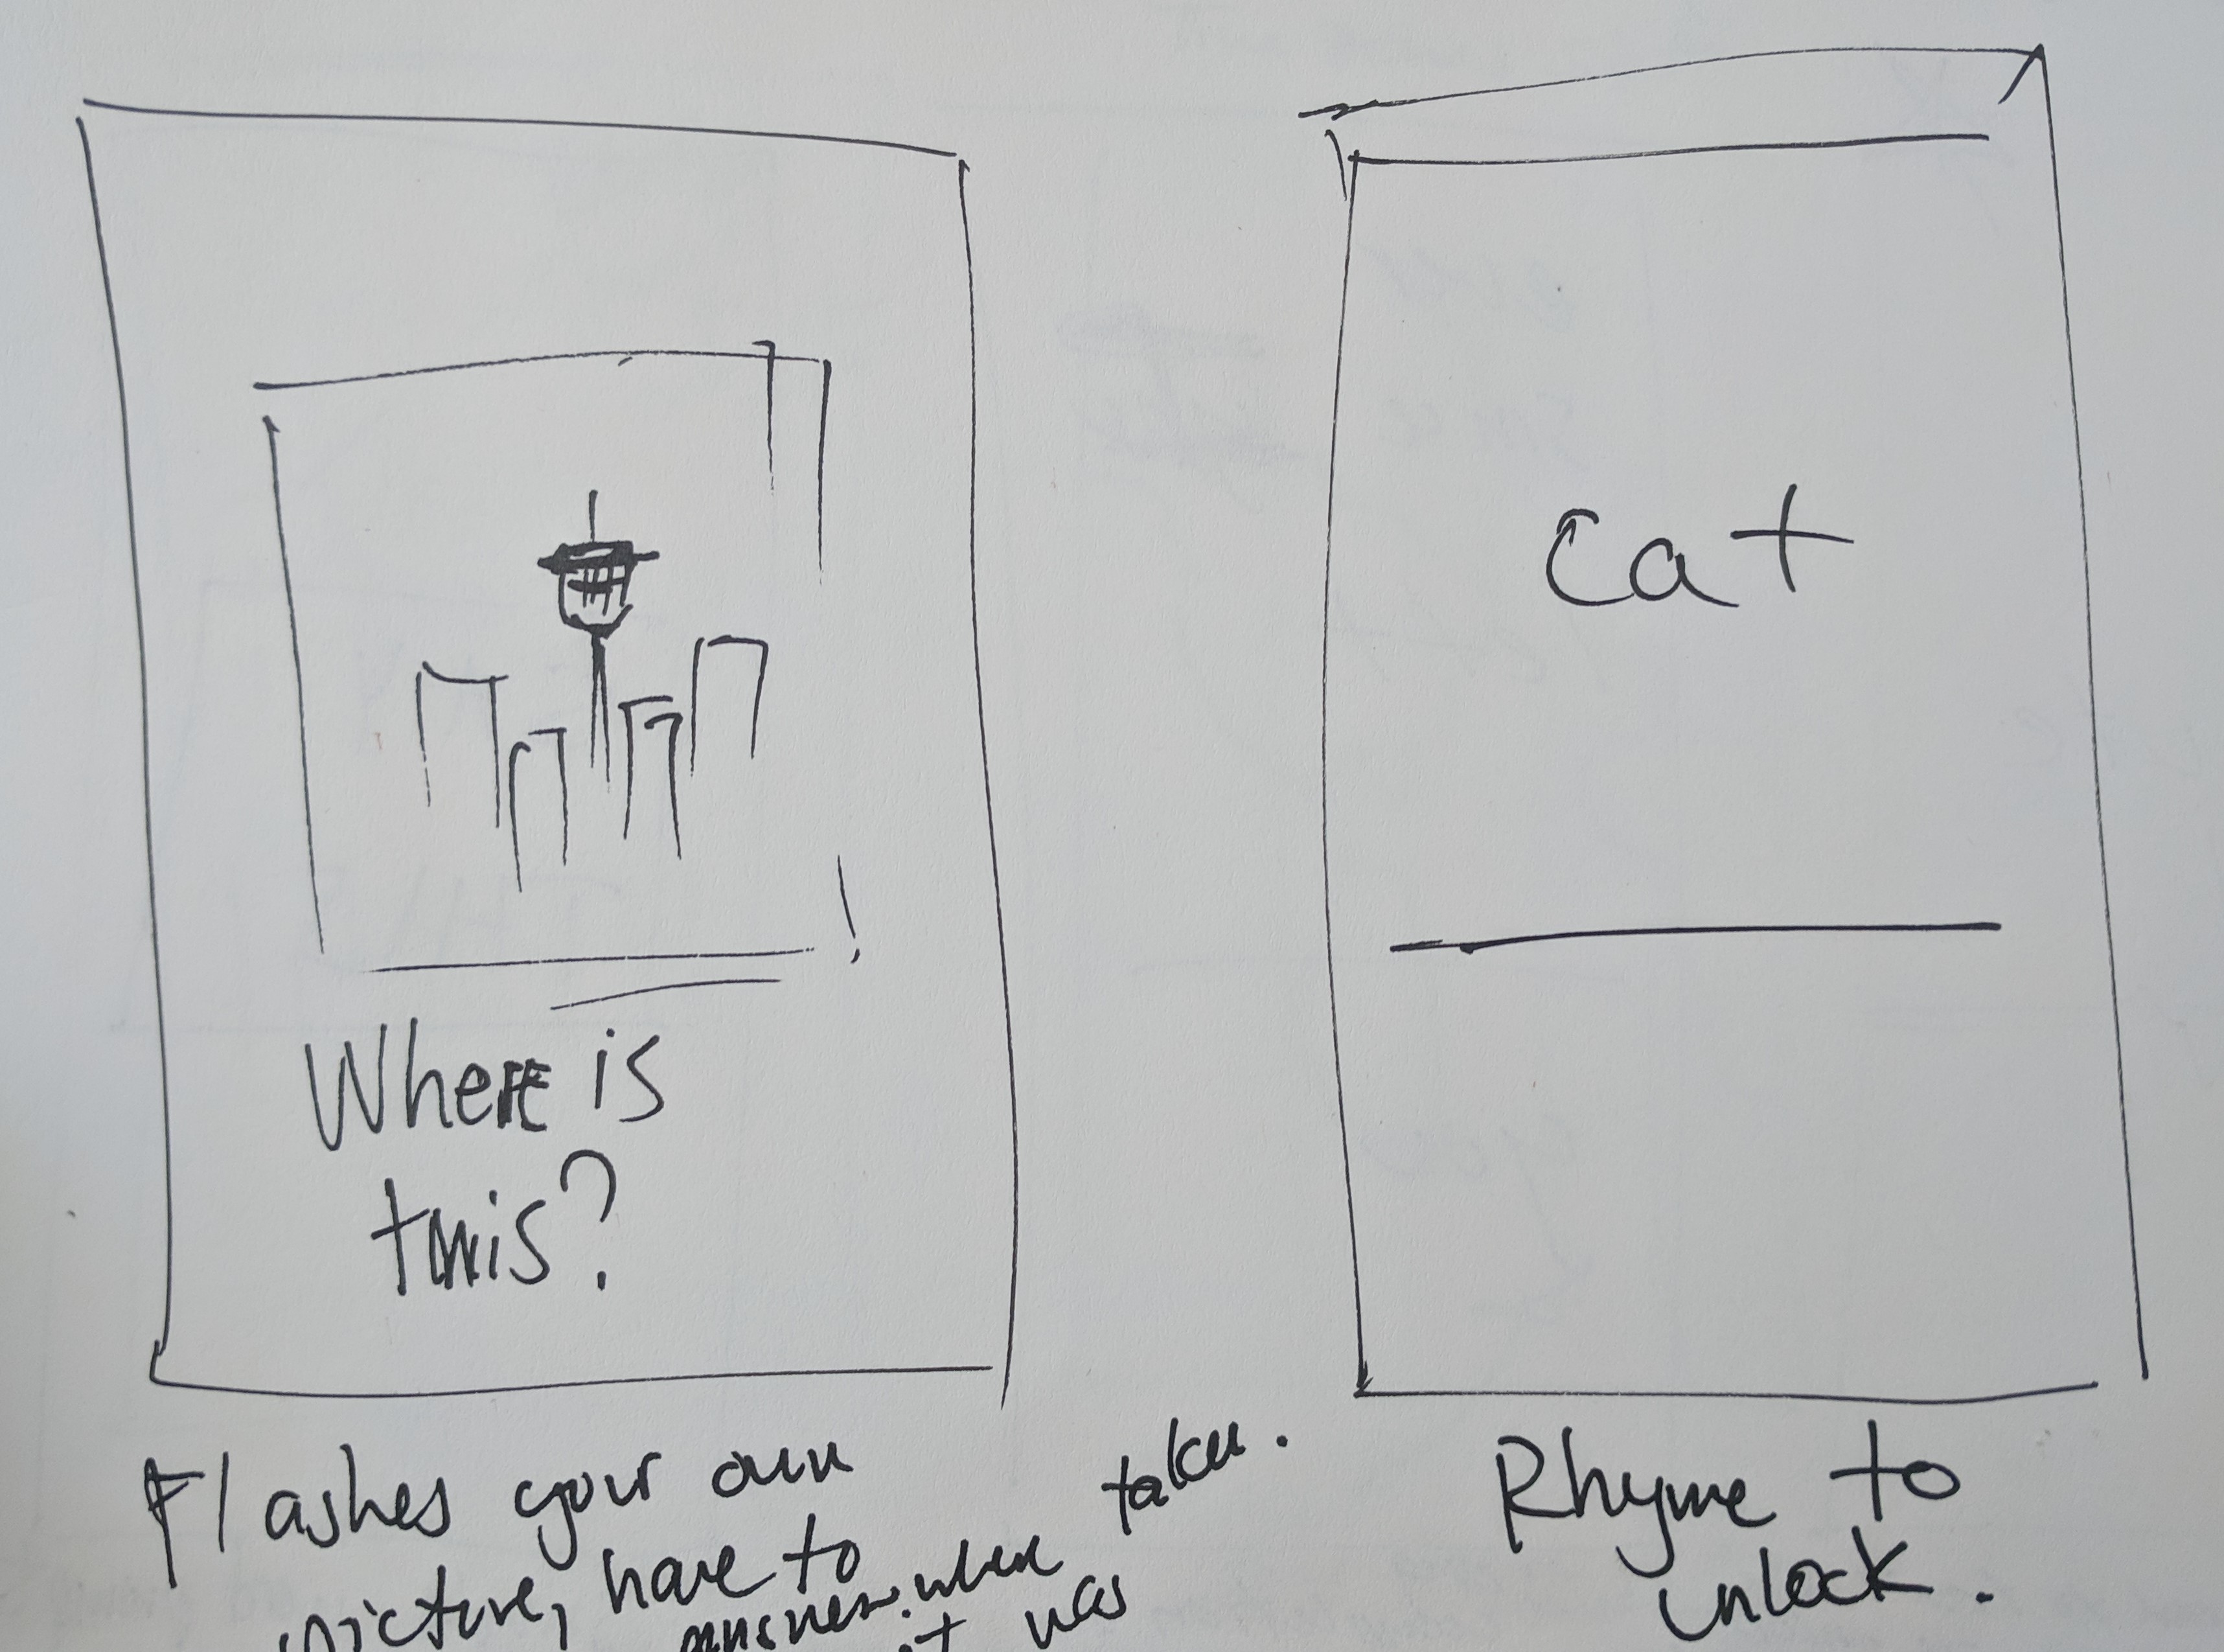 Where is
this?
Flashes your own
picture, have to
answer when
it was
taken.
cat
Rhyme to
unlock.